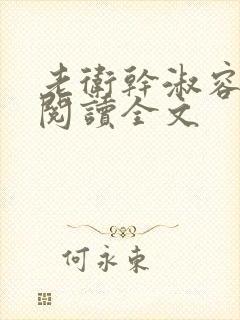 老衛幹淑容
閱讀全文
何永東